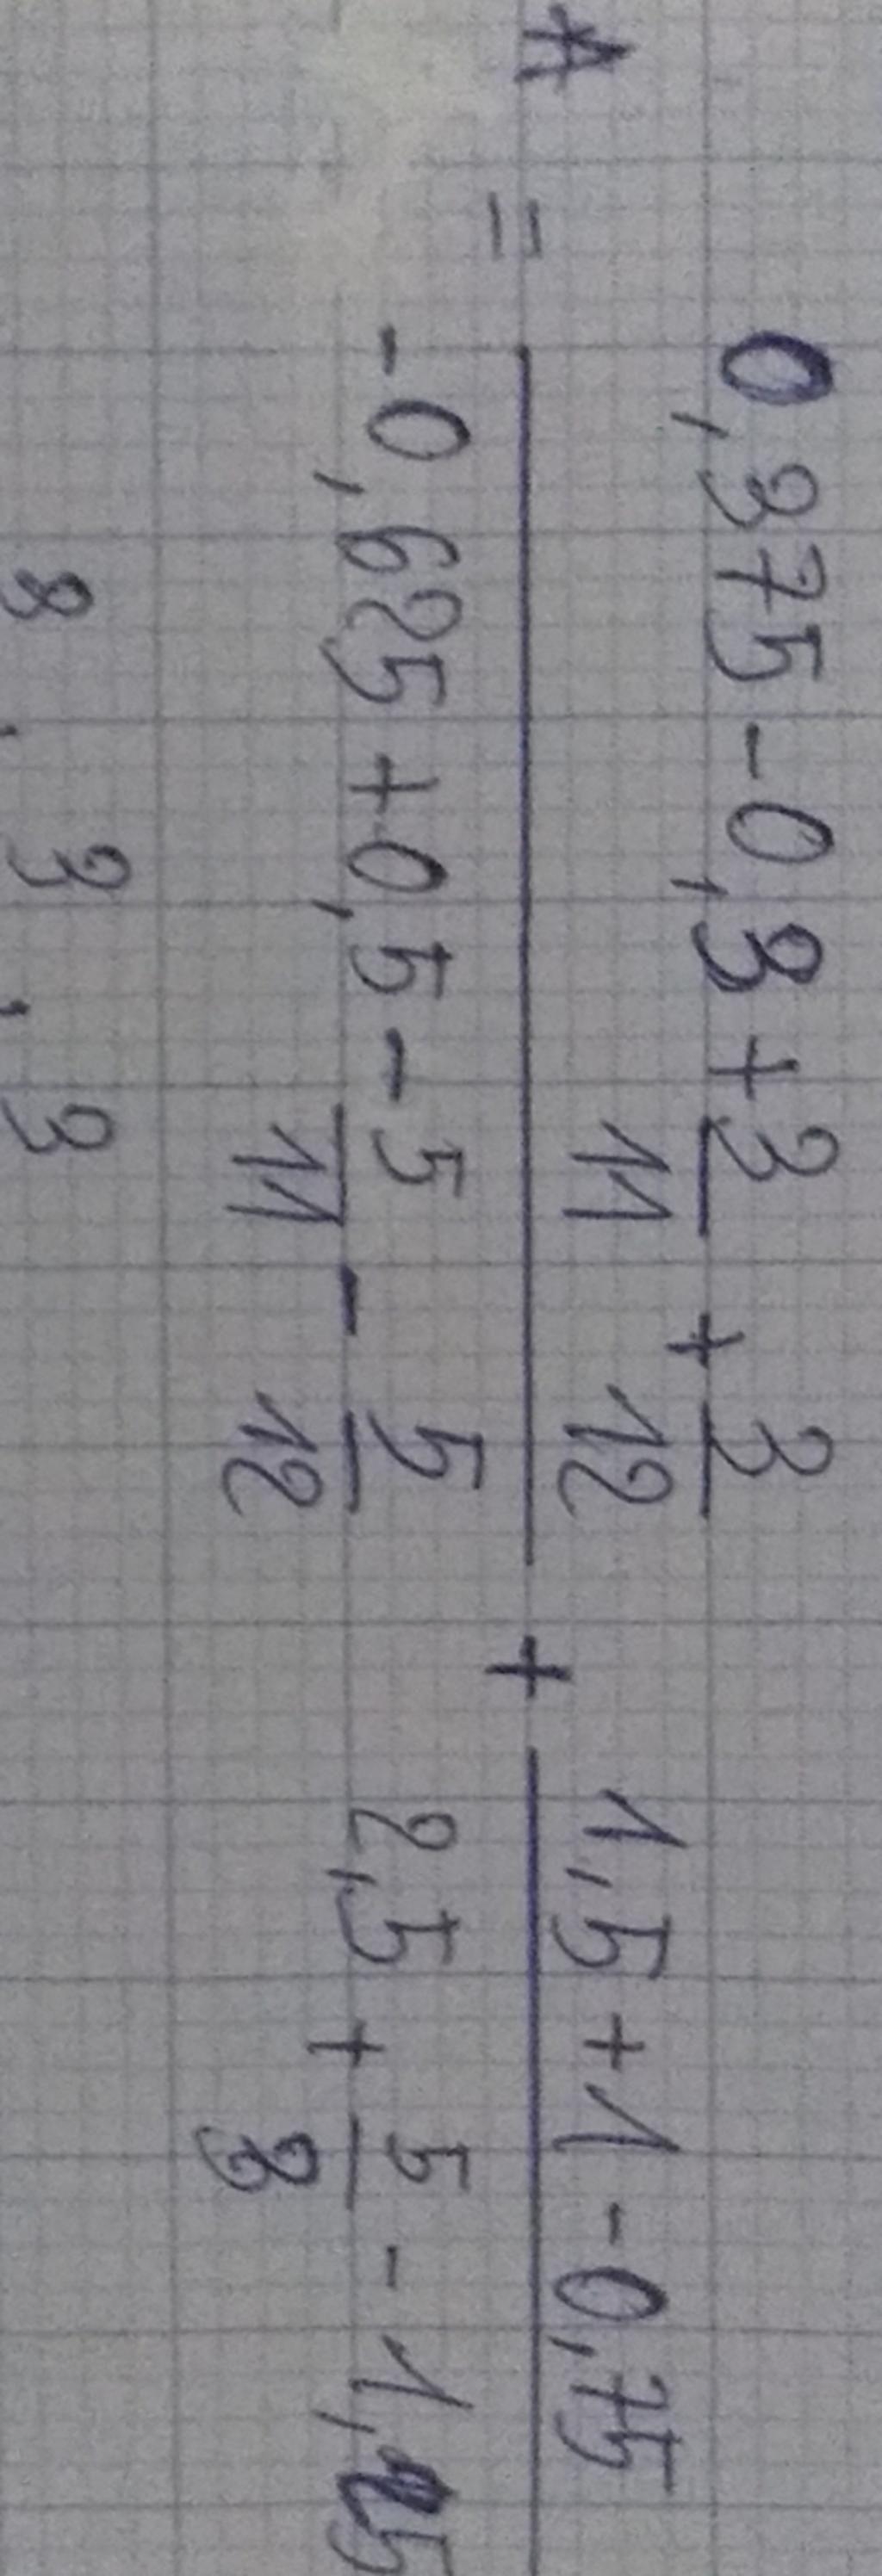 A = \frac{0,375 - 0,3 + \frac{3}{11} + \frac{3}{12}}{-0,625 + 0,5 - \frac{5}{11} - \frac{5}{12}} + \frac{1,5 + 1 - 0,75}{2,5 + \frac{5}{3} - 1,25}
3 3